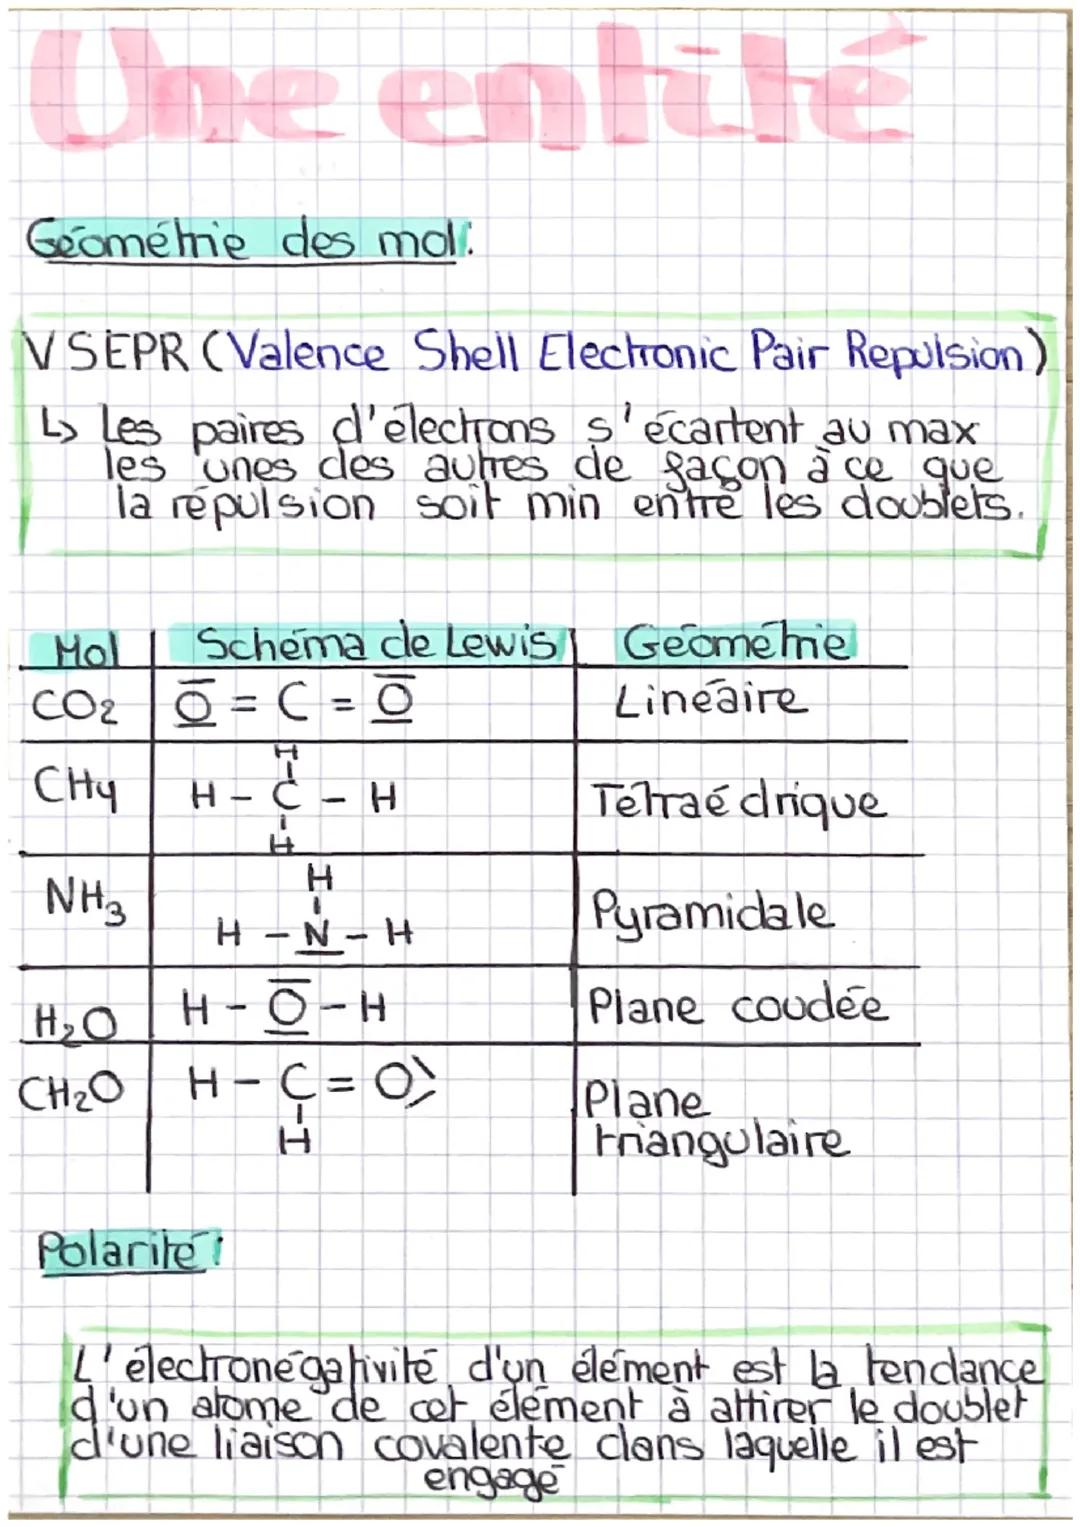 Une entité
Géométrie des mol:
VSEPR (Valence Shell Electronic Pair Repulsion)
↳ Les paires d'électrons s'écartent au max
les unes des autres de façon à ce que
la répulsion soit min entre les doublets.
Mol | Schéma de Lewis | Géométrie
CO2 | O = C = O | Linéaire
H
CH4 | H - C - H | Tétraédrique
H
H
NH3 | H - N - H | Pyramidale
H2O | H - O - H | Plane coudée
CH2O | H - C = O | Plane
H | triangulaire
Polarité:
L'électronégativité d'un élément est la tendance
d'un atome de cet élément à attirer le doublet
d'une liaison covalente dans laquelle il est
engagé